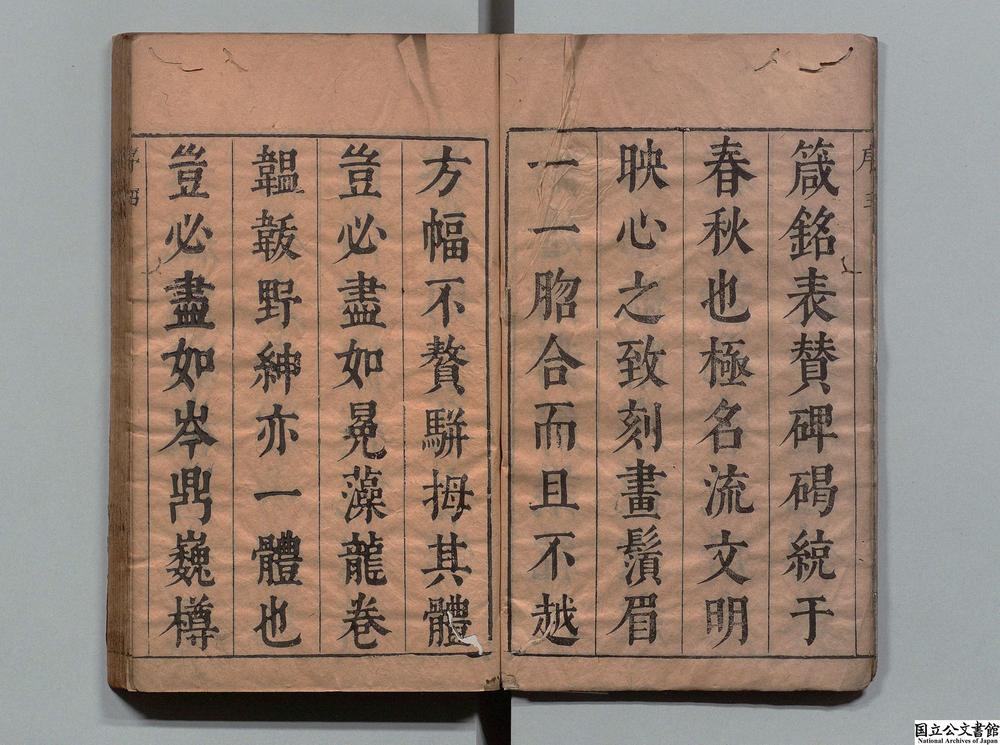 箴銘表賛碑碣統于
春秋也極名流文明
映心之致刻畫鬚眉
一一脗合而且不越
方幅不贅駢拇其體
豈必盡如冕藻龍卷
韞韍野紳亦一體也
豈必盡如岑鼎巍樽
国立公文書館
National Archives of Japan